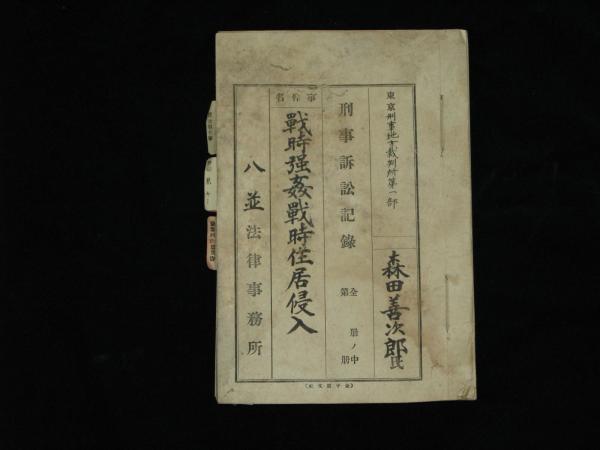 東京刑事地方裁判所第一部
森田善次郎氏
刑事訴訟記録
全 冊ノ中
第 冊
事件名
戰時强姦戰時住居侵入
八並法律事務所